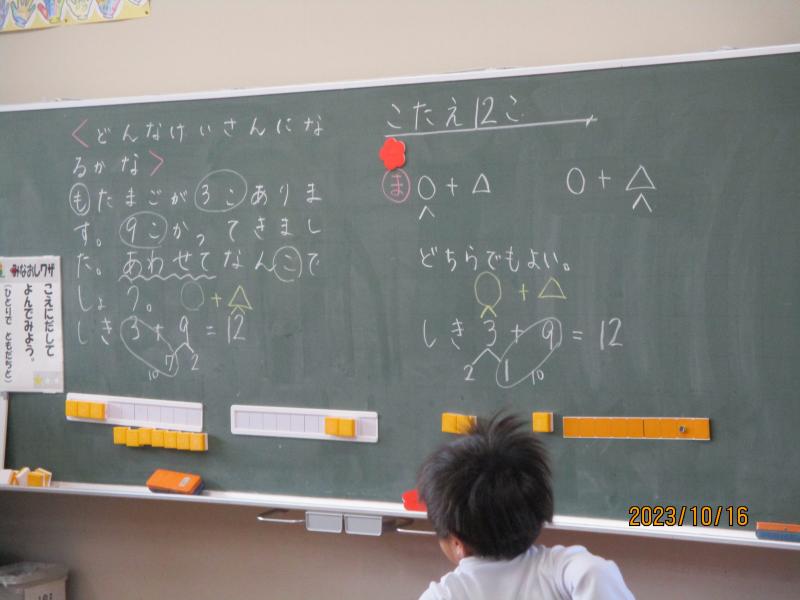 <どんなけいさんにな
るかな>
もたまごが3こありま
す。9こかってきまし
た。あわせてなんこで
しょう。○+△
しき 3+9=12
10 7 2
こたえ12こ
ま ○+△ ○+△
どちらでもよい。
○+△
しき 3+9=12
2 1 10
みなおしワザ
こえにだして
よんでみよう。
(ひとりで ともだちと)
2023/10/16